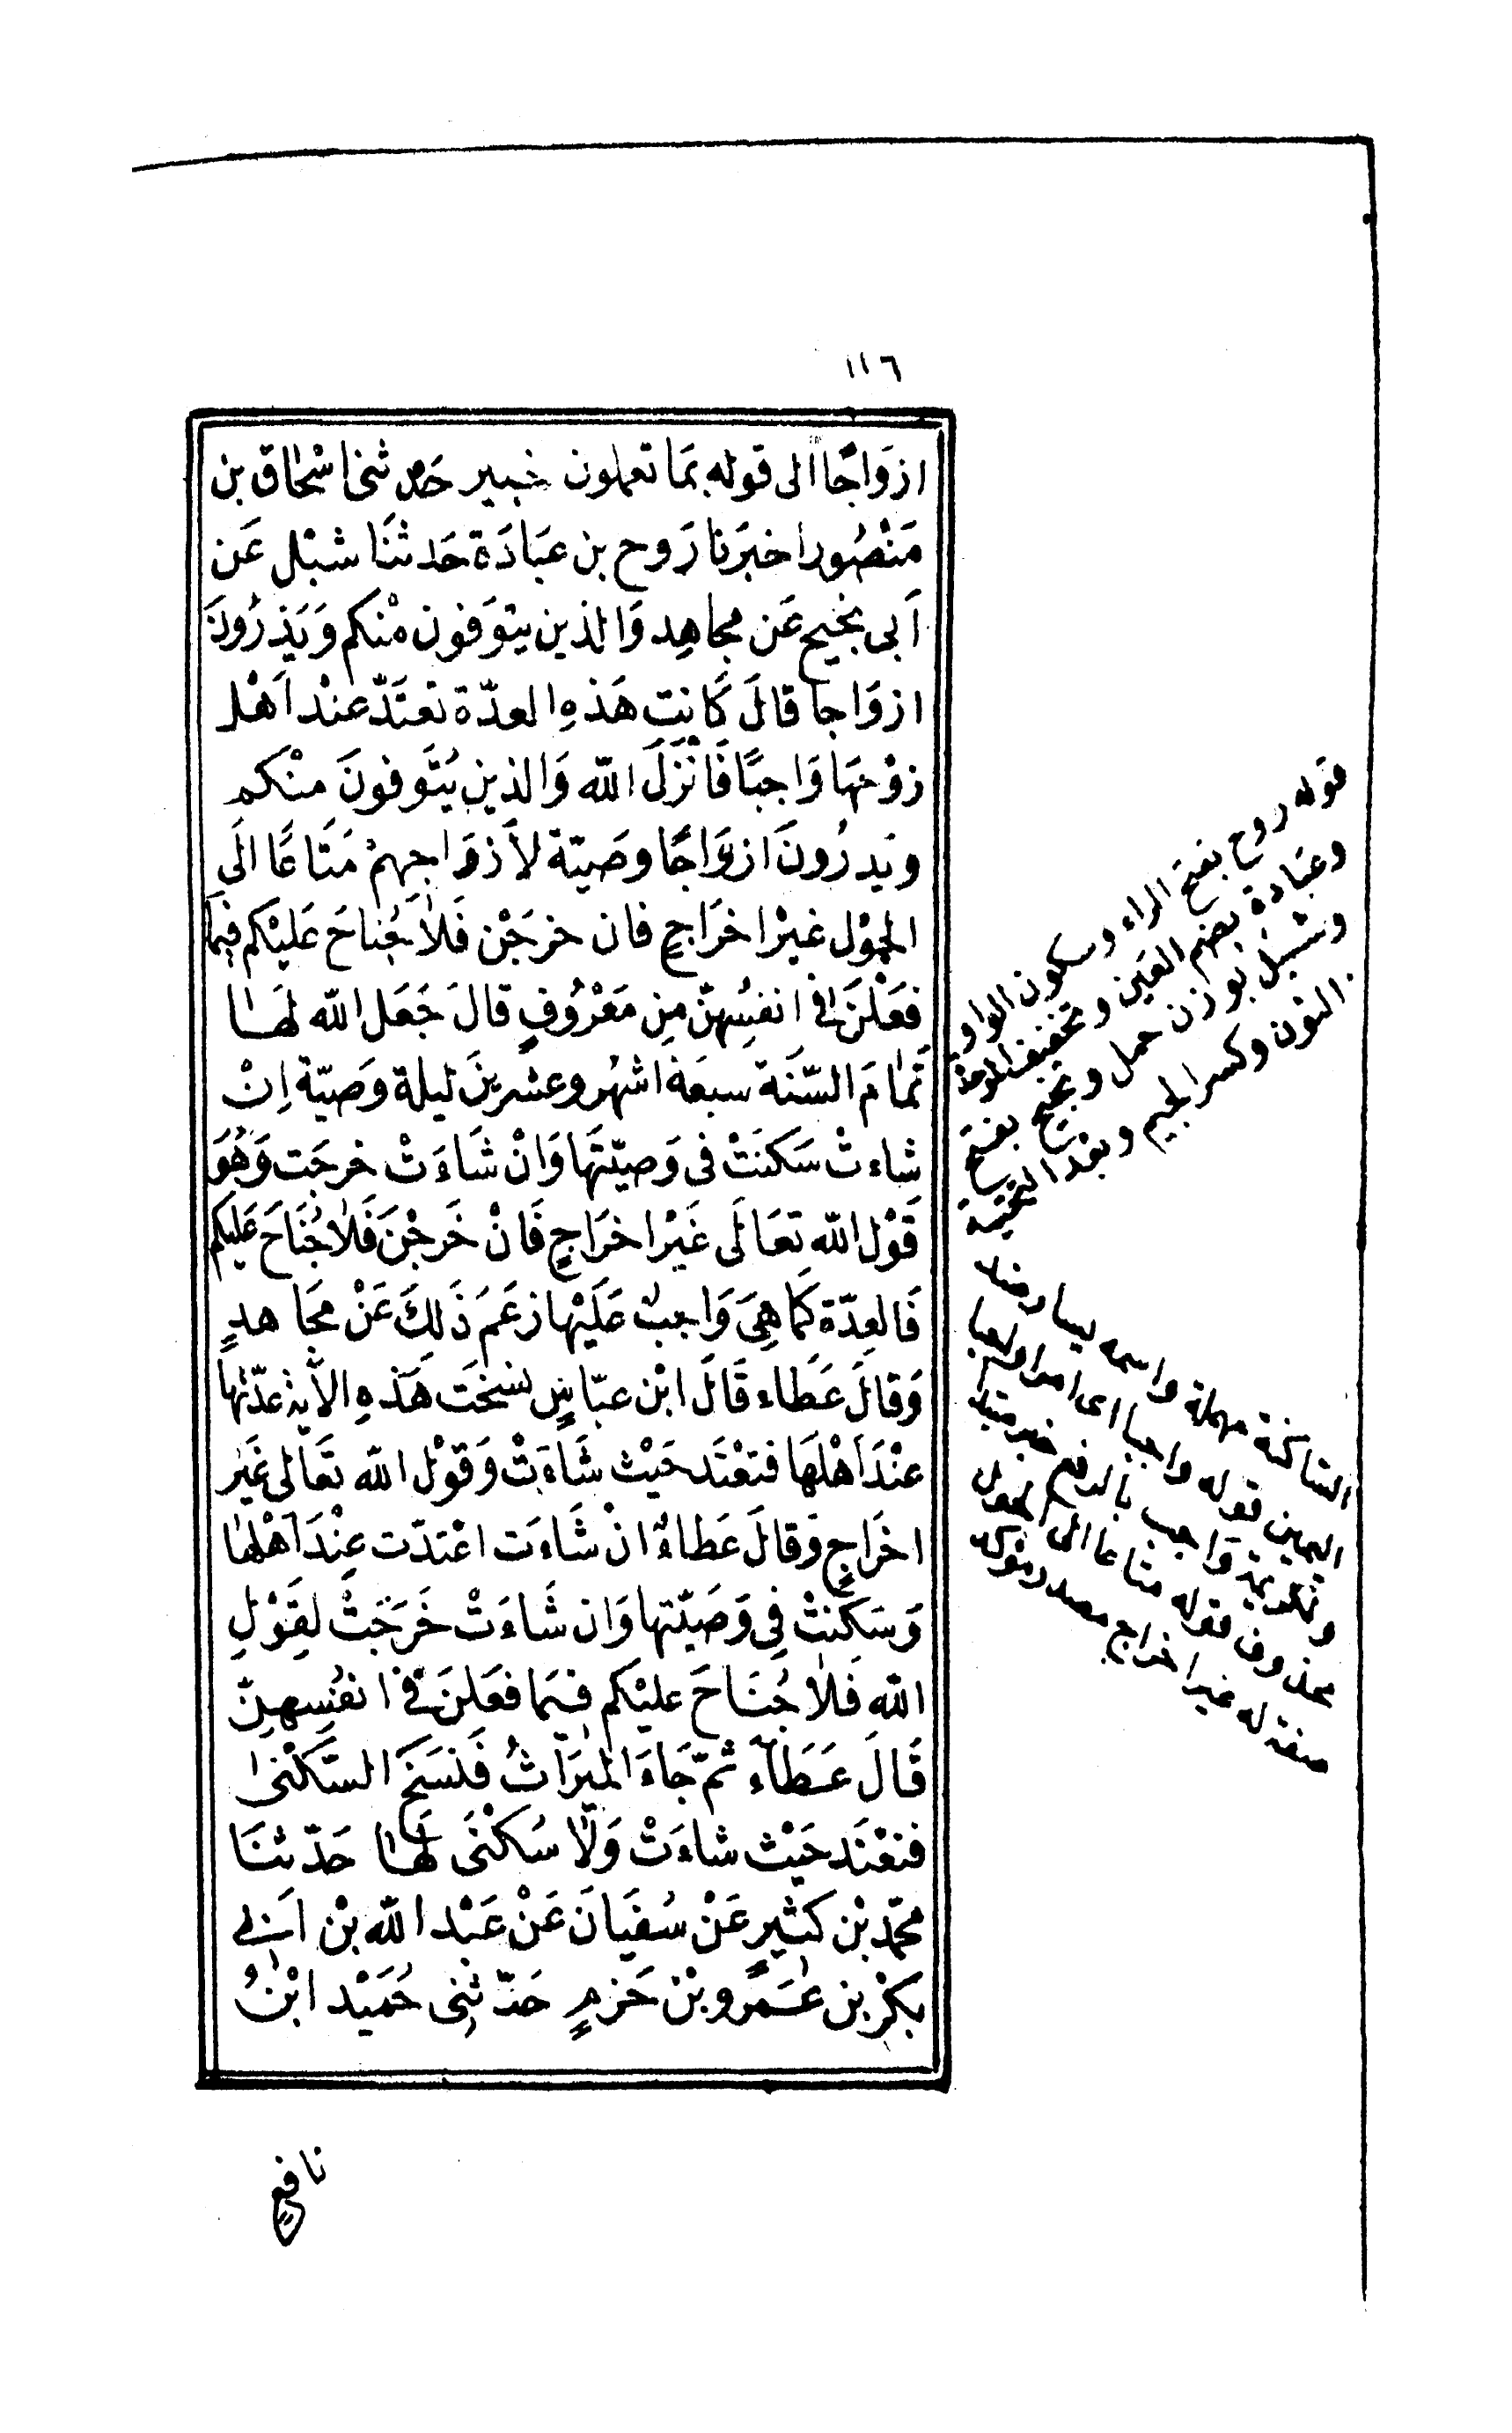 ١١٦
ازوَاجًا الى قوله بمَا تعملون خبير حَدثنى اسْحٰاق بن
مَنْصُور اخبرَنا رَوح بن عبَادَة حَدثنَا شبْل عَن
اَبى نجَيح عَن مجاهِد وَالذين يتوَفون منْكم وَيَذرُونَ
ازوَاجا قالَ كَانت هَذهِ العدّة تعتَدّ عنْد اَهْل
زوْجهَا وَاجبًا فَانْزَلَ الله وَالذين يُتَوفونَ منْكم
ويَدرُونَ ازوَاجًا وصَيّة لأَزوَاجهمْ مَتَاعًا الَى
الحَوْل غيْر اخرَاجٍ فان خرجَْن فَلاَ جُناحَ عَليْكم فيَما
فعَلْنَ فى انفسُِهنّ مِن مَعْرُوفٍ قالَ جَعَل الله لهَا
تمٰامَ السّنَة سبعَة اشهُر وعشرينَ ليلة وَصيّة اِنْ
شاءتْ سَكنَتْ فى وَصيّتهَا وَانْ شَاءَتْ خرجَت وَهُوَ
قَوْل الله تعَالَى غَيْر اخرَاجٍ فَانْ خَرجْنَ فَلاٰ جُنَاحَ عَليكم
فَالعدّة كمَا هِىَ وَاجبٌ عَلَيْها زعَمَ ذَلِكَ عَنْ مجَاهدٍ
وَقالَ عَطَاء قَالَ ابْن عبّاسٍ نسَخَت هَذهِ الآية عدّتهَا
عنْدَ اَهْلهَا فتعْتَد حَيْث شَاءَتْ وَقوْل الله تعَالى غَيْر
اخرَاجٍ وَقالَ عَطاءٌ انْ شَاءَت اعْتدّت عِنْدَ اَهْلهَا
وَسَكَنتْ فِى وَصَيّتها وَان شَاءَتْ خَرَجَتْ لقَوْلِ
الله فَلاٰ جُنَاحَ عليْكم فيمَا فعَلنَ فى انفسُِهنّ
قَالَ عَطَاء ثمّ جَاءَ الميرَاثُ فَنسَخَ السّكْنىٰ
فتعْتَد حَيْث شاءَتْ وَلَا سُكْنَى لهَا حَدّثنَا
محمّد بْن كثيرٍ عَنْ سُفيَانَ عَنْ عَبْد الله بْن اَبى
بكْر بن عَمَرو بْن حَزمٍ حَدّثنِى حُمَيْد ابْنُ
قوله روح بفتح الراء وسكون الواو
وعبَادة بضم العين وتخفيف الموحدة
وشبل بوزن حمل ونجيح بفتح
النون وكسر الجيم وبعد التحتية
الساكنة مهملة واسمه يسار ضد
اليمين قوله واجبا اى امرا واجبا
واجب بالرفع خبر مبتدا
محذوف قوله متاعا الى الحول
صفته له غير اخراج مصدر مؤكد
نافع